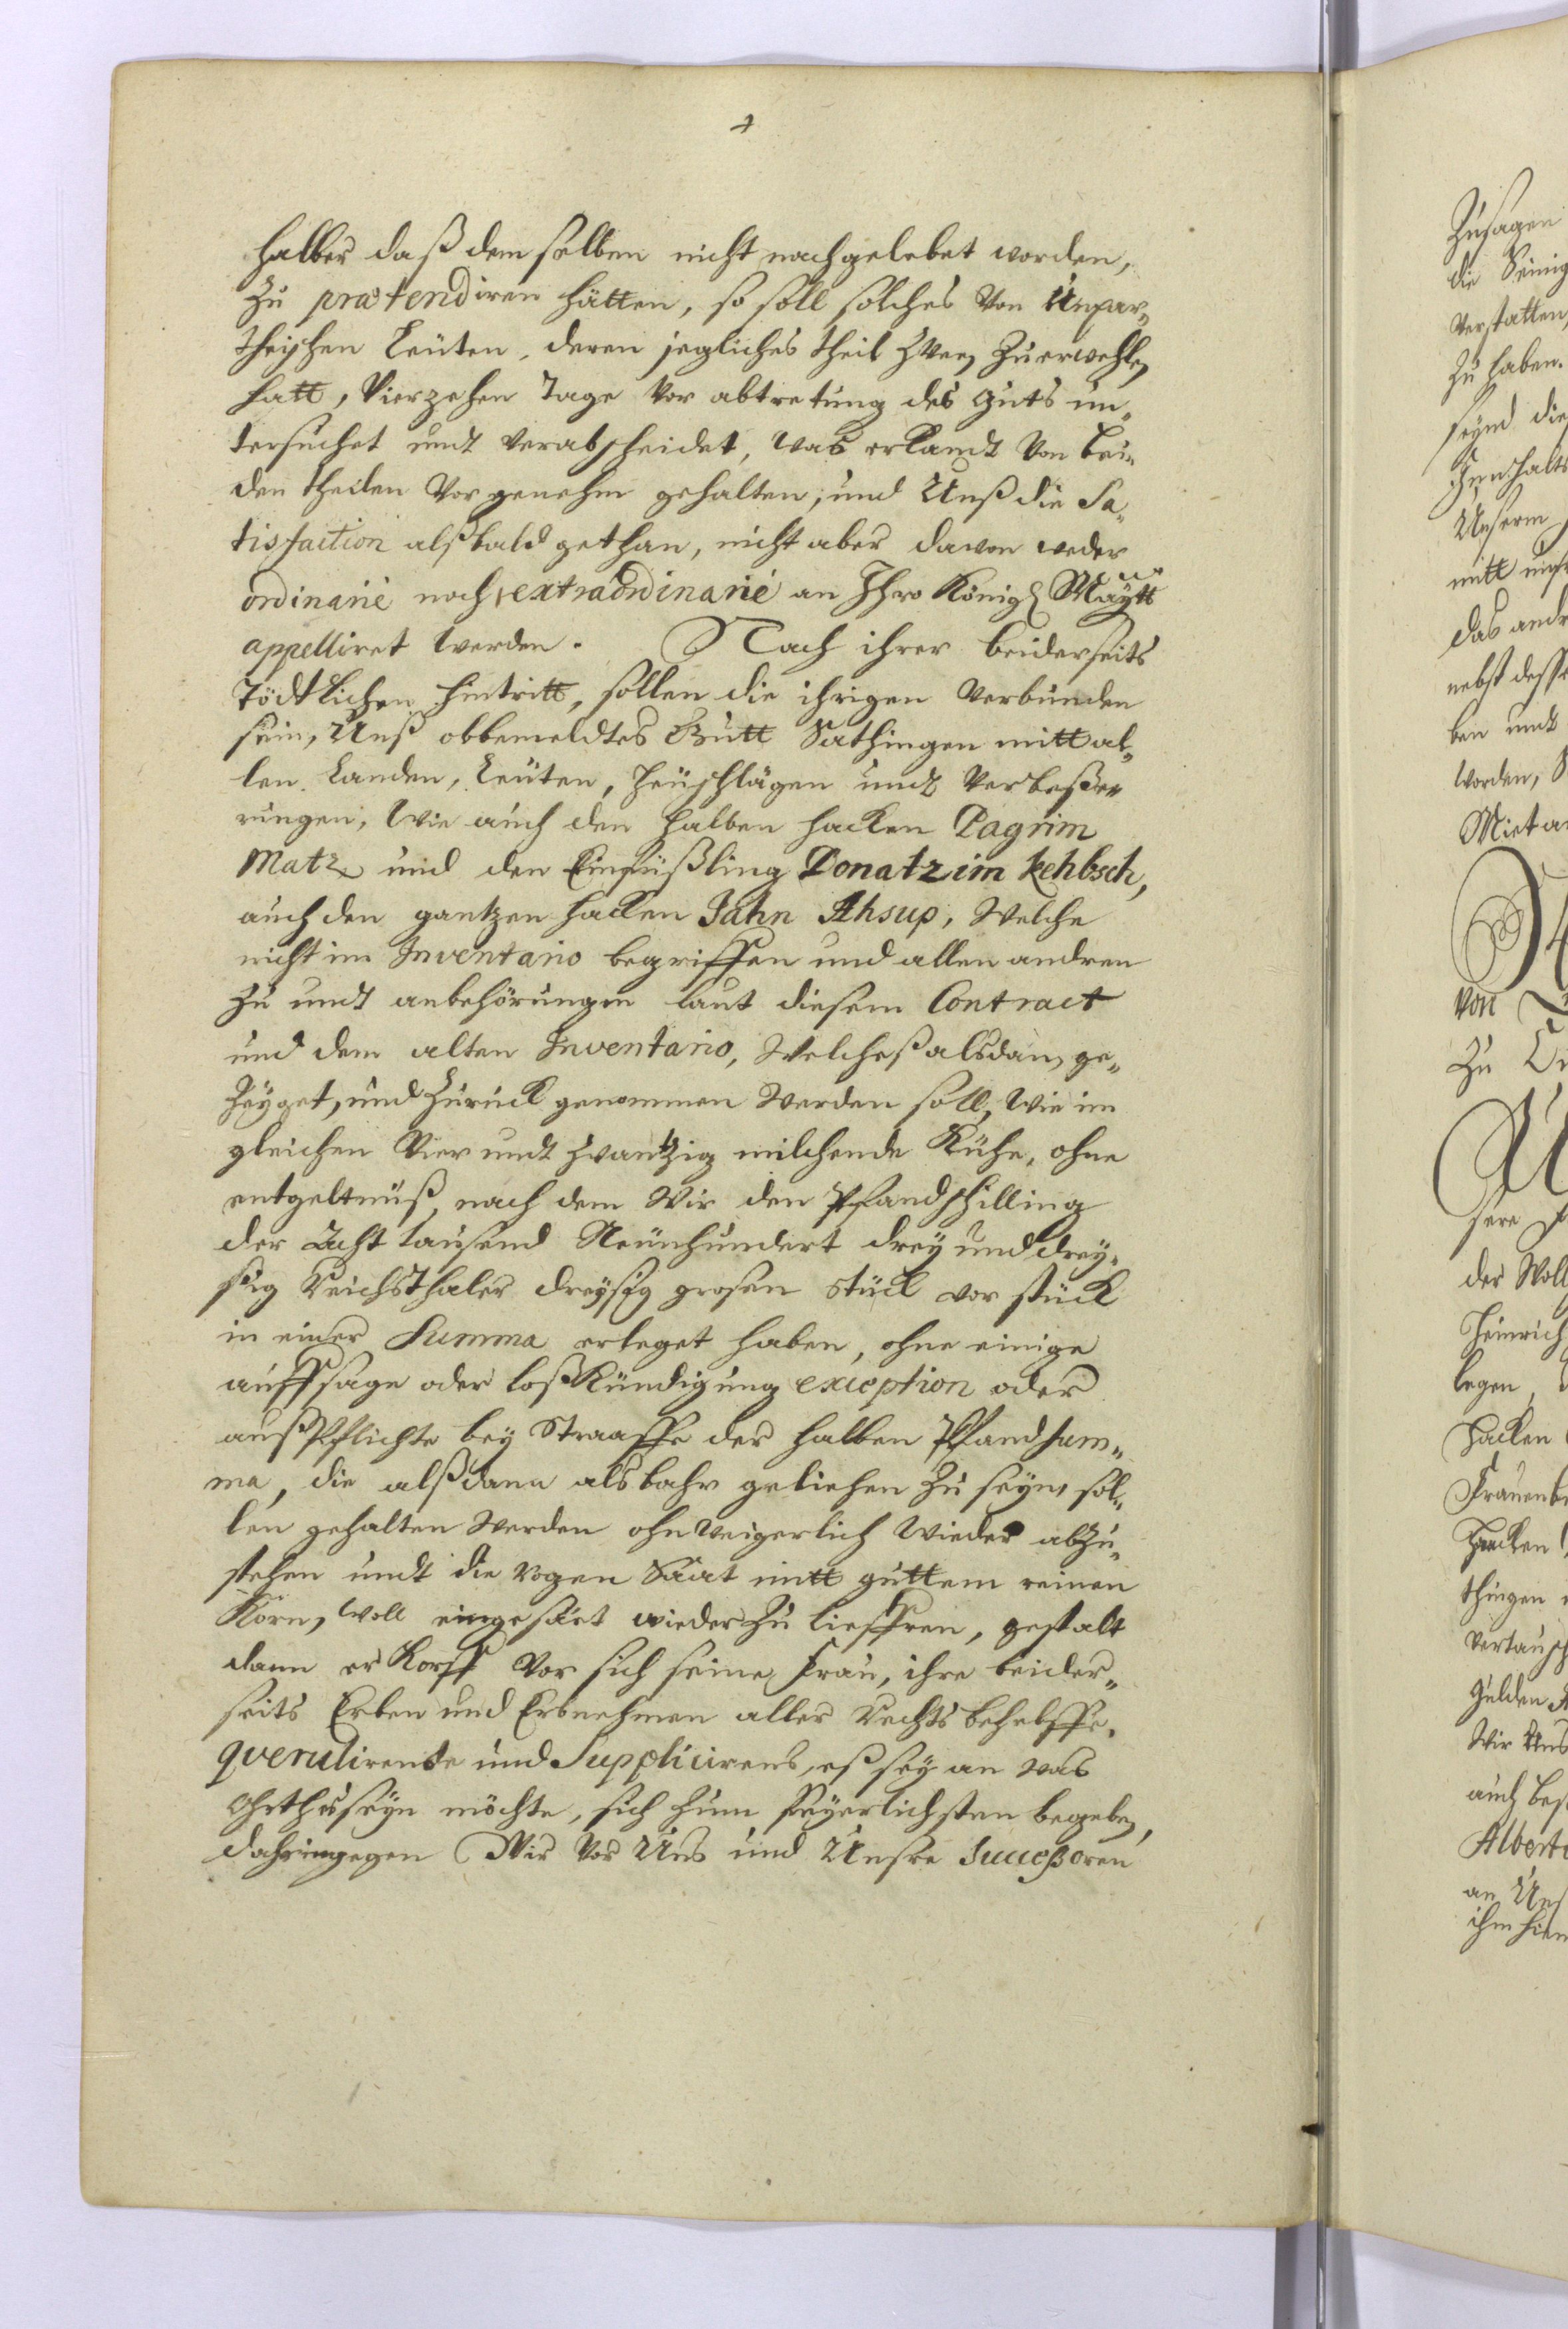 halber daß dem selben nicht nachgelebet worden,
Zu prætendiren hätten, so soll solches Von Unpar„
theischen Leüten, deren jegliches theil Zween Zuerwehlen
hatt, Vierzehen Tage Vor abtretung des Guts un„
tersuchet undt Verabscheidet, was erkandt Von bei„
den theilen Vor genehm gehalten, und Unß die Sa„
tisfaction alßbald gethan, nicht aber davon weder
ordinariè noch extraordinariè an Ihro Königl Maÿtt
appelliret werden. Nach ihrer beiderseits
Tödtlichen hintritt, sollen die ihrigen Verbunden
sein, Unß obbemeldtes Gutt Sathingen mitt al„
len Landen, Leüten, Heüschlägen undt Verbeße„
rungen, Wie auch den halben hacken Pagrim
Matz und den Einfüßling Donatz im kehbsch,
auch den gantzen hacken Jahn Ahsup, Welche
nicht im Inventario begriffen und allen andren
Zu undt anbehörungen laut diesem Contract
und dem alten Inventario, Welcheß alsdan, ge„
Zeyget, und Zurück genommen Werden soll, Wie im
gleichen Vier undt Zwantzig milchende Kühe, ohne
entgeltnüß, nach dem Wir den Pfandschilling
der Acht tausend Neünhundert drey und drey„
ßig Reichsthaler dreysig grosen stück vor stück
in einer Summa erleget haben, ohne einige
auffsage oder loßkündigung exception oder
außpflichte bey Straaffe der halben Pfandsum„
ma, die alßdann als bahr geliehen Zu seyn, sol„
len gehalten Werden ohn weigerlich Wieder abzu„
stehen undt die Rogen Säat mitt guttem reinen
Korn, Woll eingesäet wieder Zu lieffren, gestalt
dann er Korff Vor sich seine Frau, ihre beider„
seits Erben und Erbnehmen aller Rechts behelffe,
querulirens und Supplicirens, eß sey an was
Ohrt es seyn möchte, sich Zum feyerlichsten begeben,
dahingegen Wir Vor Uns und Unsre Succeßoren
Zusagen
Verstatten,
Zu haben.
seynd die
Unserm
mitt
das andr
nebst desse
ben undt
worden,
Mieta
Von
Zu
sere
der Woll
Heinrich
legen,
Hacken
Frauenb
Hacken
thingen
Vertausch
Gulden
Wir Uns
auch bes
Albert
an Uns
ihm hie